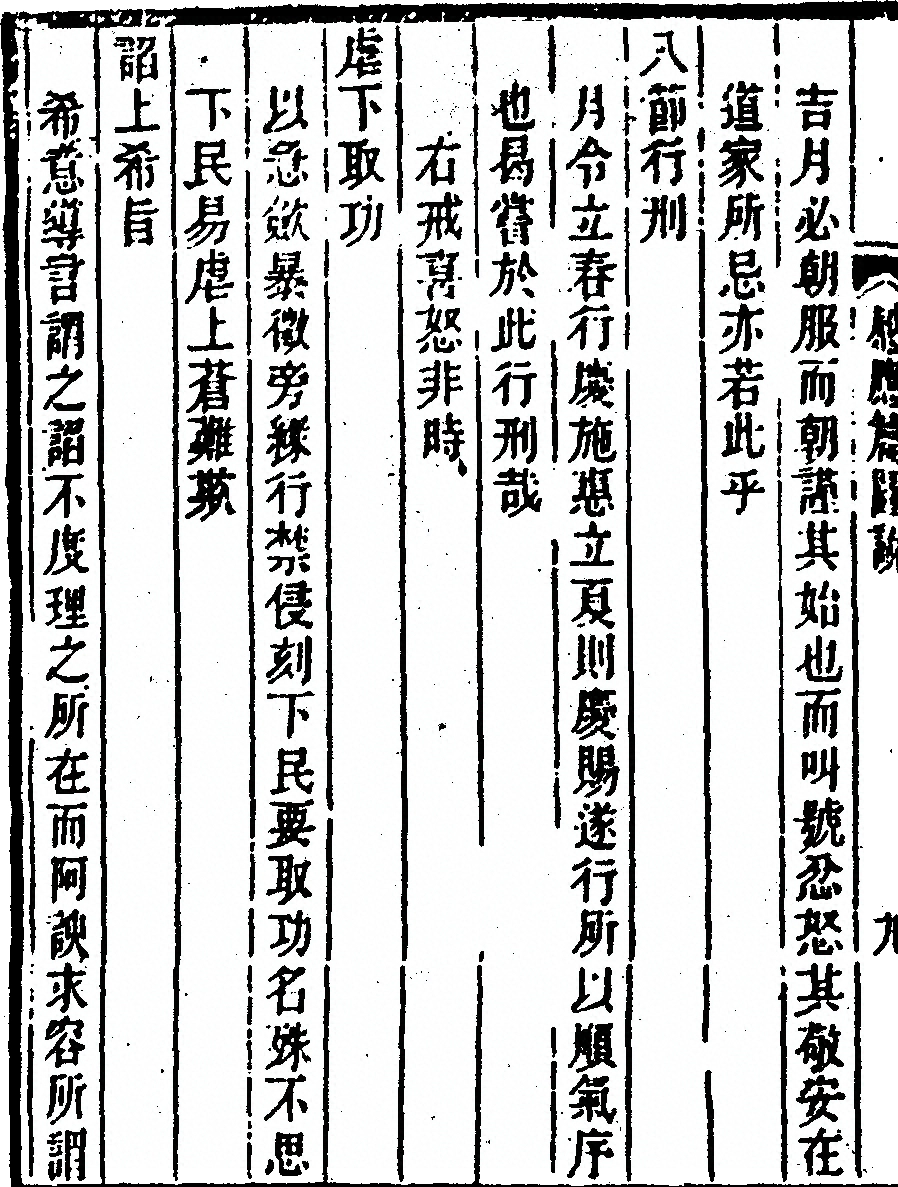 感應篇圖說
九
吉月必朝服而朝謹其始也而叫號忿怒其敬安在
道家所忌亦若此乎
八節行刑
月令立春行慶施惠立夏則慶賜遂行所以順氣序
也曷嘗於此行刑哉
右戒喜怒非時
虐下取功
以急斂暴徵旁緣行禁侵刻下民要取功名殊不思
下民易虐上蒼難欺
諂上希旨
希意導言謂之諂不度理之所在而阿諛求容所謂